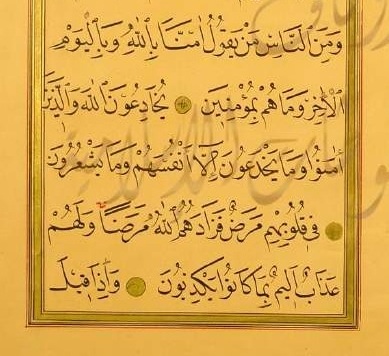 وَمِنَ النَّاسِ مَنْ يَقُولُ اٰمَنَّا بِاللّٰهِ وَبِالْيَوْمِ
الْاٰخِرِ وَمَا هُمْ بِمُؤْمِنِينَ يُخَادِعُونَ اللّٰهَ وَالَّذِينَ
اٰمَنُوا وَمَا يَخْدَعُونَ اِلَّا اَنْفُسَهُمْ وَمَا يَشْعُرُونَ
فِى قُلُوبِهِمْ مَرَضٌ فَزَادَهُمُ اللّٰهُ مَرَضًا وَلَهُمْ
عَذَابٌ اَلِيمٌ بِمَا كَانُوا يَكْذِبُونَ وَاِذَا قِيلَ